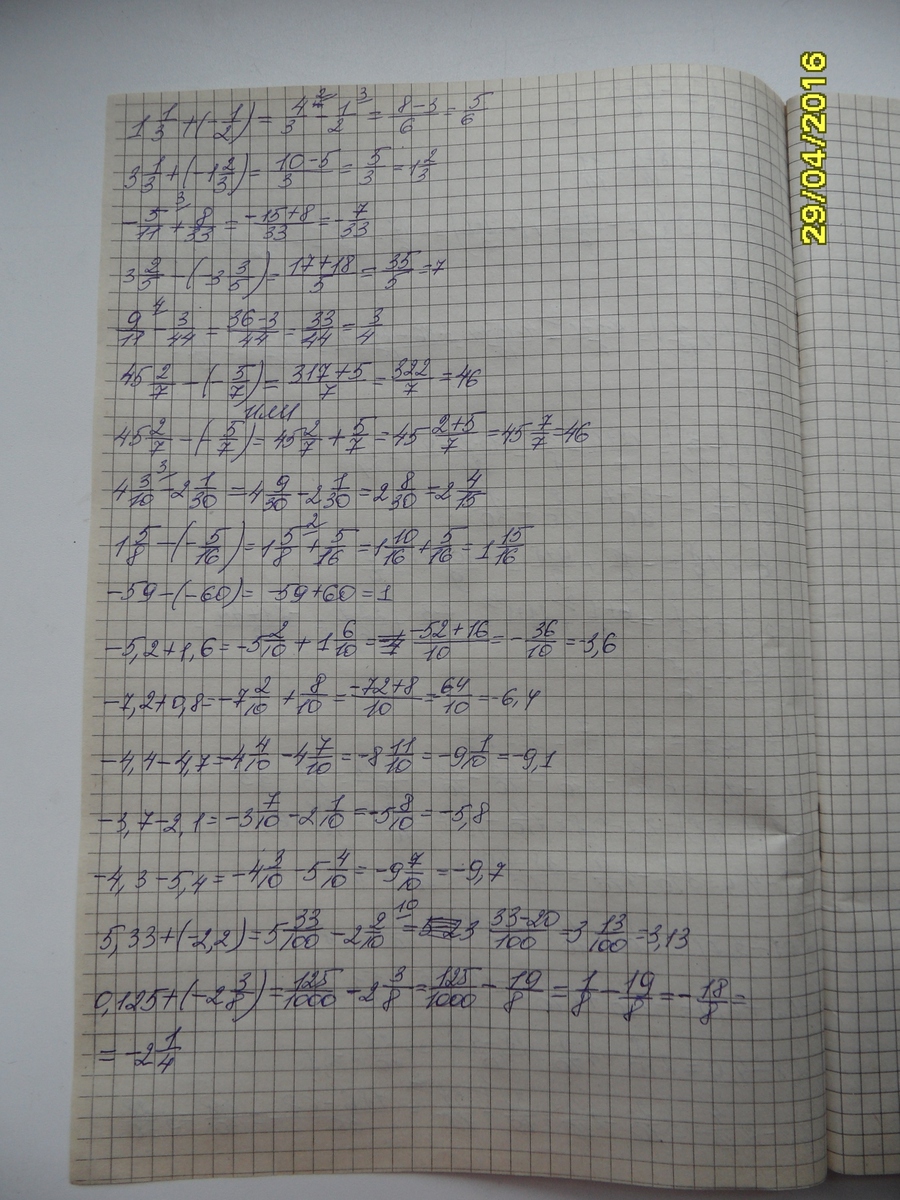 1 1/3 + (-1/2) = 4/3 ² - 1/2 ³ = (8-3)/6 = 5/6
3 1/3 + (-1 2/3) = (10-5)/3 = 5/3 = 1 2/3
-5/11 ³ + 8/33 = (-15+8)/33 = -7/33
3 2/5 - (-3 3/5) = (17+18)/5 = 35/5 = 7
9/11 ⁴ - 3/44 = (36-3)/44 = 33/44 = 3/4
45 2/7 - (-5/7) = (317+5)/7 = 322/7 = 46
или
45 2/7 - (-5/7) = 45 2/7 + 5/7 = 45 (2+5)/7 = 45 7/7 = 46
4 3/10 ³ - 2 1/30 = 4 9/30 - 2 1/30 = 2 8/30 = 2 4/15
1 5/8 - (-5/16) = 1 5/8 ² + 5/16 = 1 10/16 + 5/16 = 1 15/16
-59-(-60) = -59+60 = 1
-5,2+1,6 = -5 2/10 + 1 6/10 = (-52+16)/10 = -36/10 = -3,6
-7,2+0,8 = -7 2/10 + 8/10 = (-72+8)/10 = -64/10 = -6,4
-4,4-4,7 = -4 4/10 - 4 7/10 = -8 11/10 = -9 1/10 = -9,1
-3,7-2,1 = -3 7/10 - 2 1/10 = -5 8/10 = -5,8
-4,3-5,4 = -4 3/10 - 5 4/10 = -9 7/10 = -9,7
5,33+(-2,2) = 5 33/100 - 2 2/10 ¹⁰ = 3 (33-20)/100 = 3 13/100 = 3,13
0,125+(-2 3/8) = 125/1000 - 2 3/8 = 125/1000 - 19/8 = 1/8 - 19/8 = -18/8 =
= -2 1/4
29/04/2016